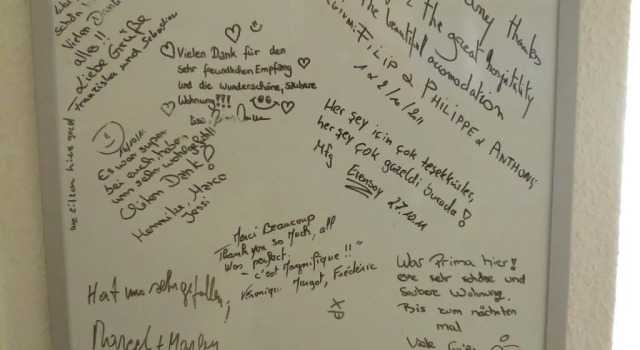 schön
Vielen Dank
alles!!
Liebe Grüße
Franziska und Sebastian
Vielen Dank für den
sehr freundlichen Empfang
und die wunderschöne, saubere
Wohnung!!!
many thanks
the great hospitality
the beautiful accomodation
FILIP & PHILIPPE & ANTHONY
Es war super
bei euch, haben
uns sehr wohlgefühlt
Vielen Dank!
Marco
Jessi
Her şey için çok teşekkürler,
her şey çok güzeldi burada!
Mfg
27.10.11
Merci Beaucoup
Thank you so Much, all
Was perfect.
- c'est Magnifique!!"
Véronique Margot, Frédéric
Hat uns sehr gefallen,
Marcel +
Was Prima hier!
eine sehr schöne und
Saubere Wohnung.
Bis zum nächsten
mal
Viele